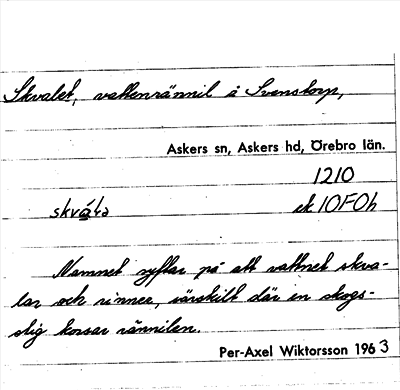 Skvalet, vattenrännil å Svenstorp,
Askers sn, Askers hd, Örebro län.
1210
ek 10F0h
Namnet syftar på att vattnet skva-
lar och rinner, särskilt där en skogs-
stig korsar rännilen.
Per-Axel Wiktorsson 1963